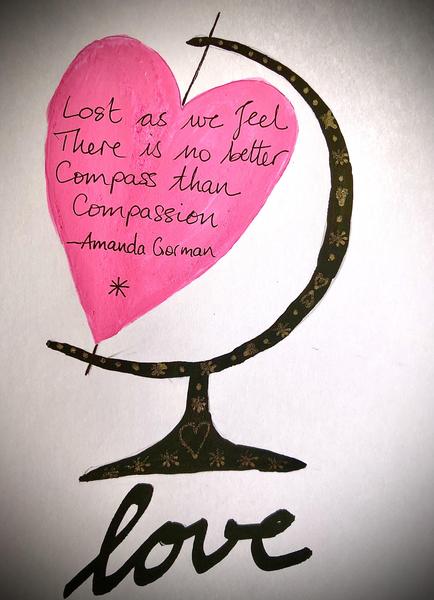 Lost as we feel
There is no better
Compass than
Compassion
—Amanda Gorman
*
love